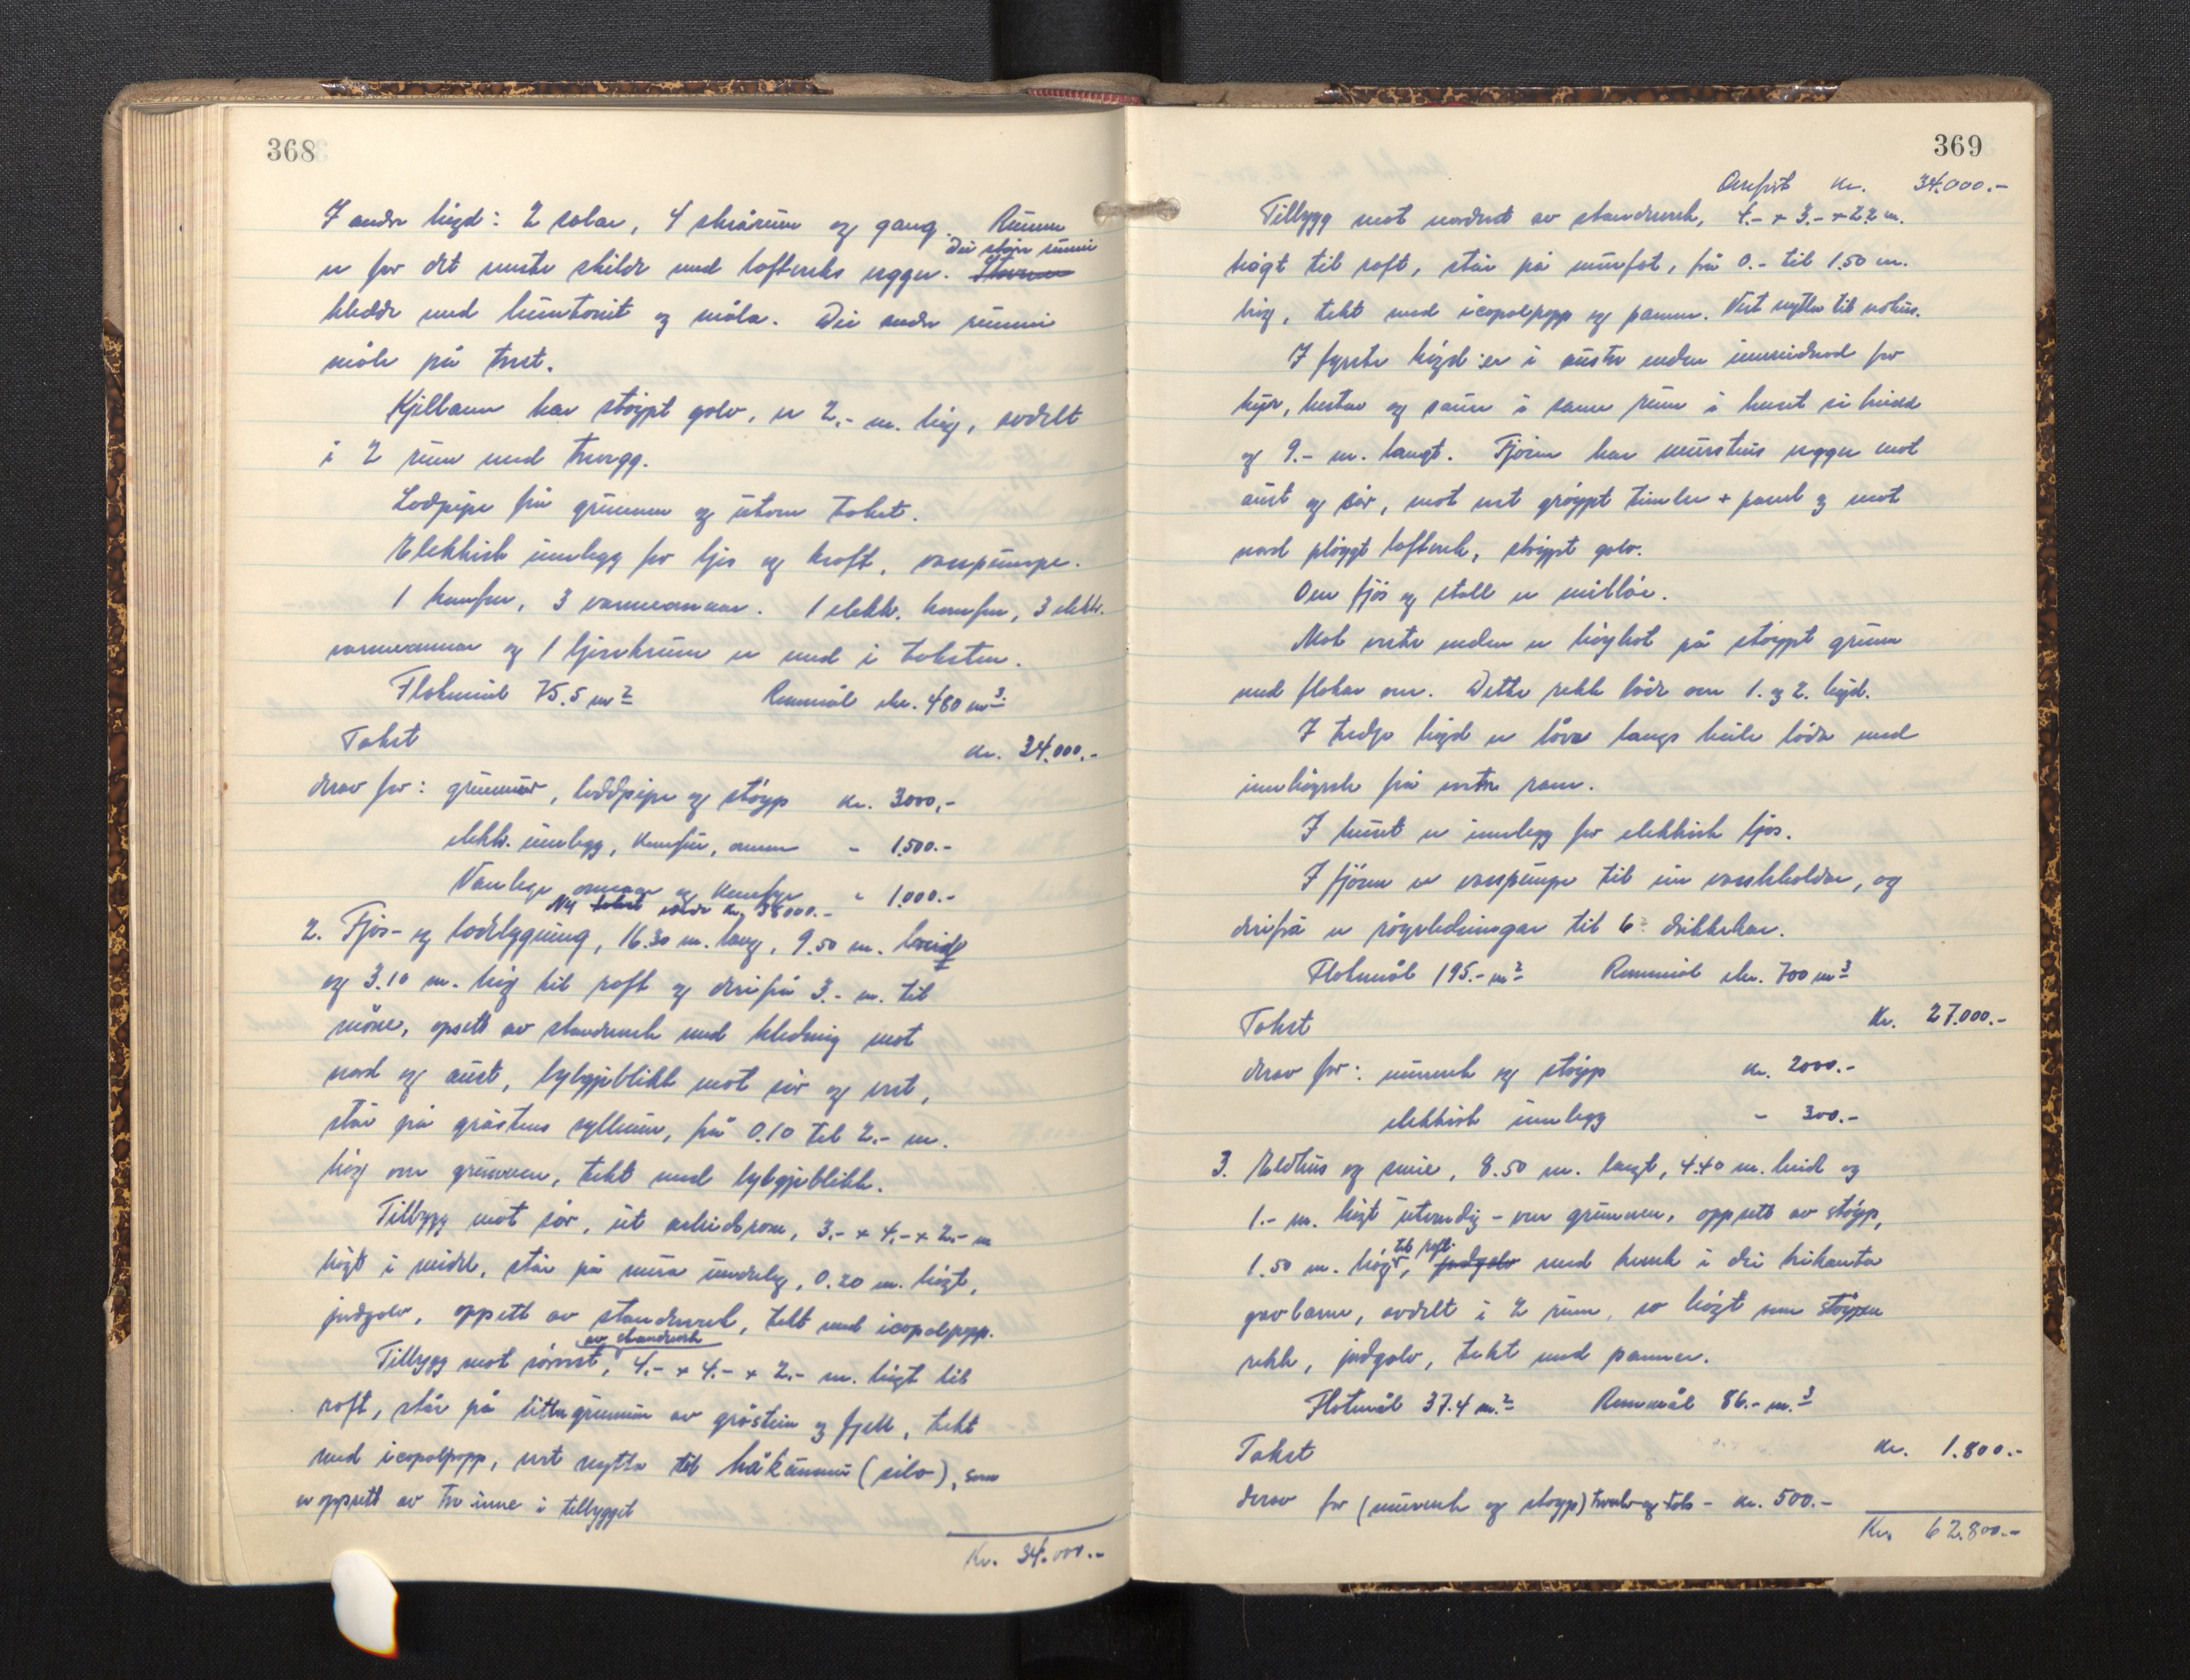 368
I andre högd: 2 salar, 4 skrårum og gang. Rumme
er for det meste skilde med loftverks vegger. Dei störe rumme
kledde med huntonit og måla. Dei andre rumme
måla på tret.
Kjellaren har stöypt golv, er 2,- m. hög, avdelt
i 2 rum med trevegg.
Lodpipe frå grunnen og utom taket.
Elektrisk innlegg for ljos og kraft, vasspumpe.
1 komfyr, 3 varmeomnar. 1 elektr. komfyr, 3 elektr.
varmeomnar og 1 ljosekrune er med i taksten.
Flatemål 75.5 m² Rummål ca. 480 m³.
Takst kr. 34.000.-
derav for: grunnmur, loddpipe og stöyp kr. 3000,-
elektr. innlegg, komfur, omnar - 1.500.-
Vanlege omnar og komfyr - 1.000.-
Ny takst kr. 38000.-
2. Fjös- og lödebygning, 16.30 m. lang, 9.50 m. breid
og 3.10 m. hög til raft og derifrå 3.- m. til
möne, opsett av standverk med kledning mot
nord og aust, bylgjeblikk mot sör og vest,
står på gråsteins syllmur, frå 0.10 til 2.- m.
hög over grunnen, tekt med bylgjeblikk.
Tilbygg mot sör, 3.- x 4.- x 2.- m
högt i midel, står på mura underlag, 0.20 m. högt,
jordgolv, oppsett av standverk, tekt med icopalpapp.
Tilbygg mot sörvest, av standverk 4.- x 4.- x 2.- m. högt til
raft, står på grunnmur av gråstein og fjell, tekt
med icopalpapp, vert nytta til håkummi (silo), som
er oppsett av tre inne i tilbygget
Kr. 34.000.-
369
Overfört kr. 34.000.-
Tilbygg mot nordvest av standverk, 4.- x 3.- x 2.2 m.
högt til raft, står på murfot, frå 0.- til 1.50 m.
hög, tekt med icopalpapp og panner. Vert nytta til vedhus.
I fyrste högd er i austre enden innreidnad for
kyr, hestar og sauer i same rum i huset si breidd
og 9.- m. langt. Fjösen har mursteins vegger mot
aust og sör, mot vest gröypt timber + panel og mot
nord plögt loftverk, stöypt golv.
Over fjös og stall er midlöe.
Mot vestre enden er höybot på stöypt grunn
med flakar over. Dette rekk både over 1. og 2. högd.
I tredje högd er låve langs heile löda med
innkjörsle frå vestre ram.
I huset er innlegg for elektrisk ljos.
I fjösen er vasspumpe til ein vasskholdar, og
derifrå er röyrledningar til 6 drikkekar.
Flatemål 195.- m² Rummål ca. 700 m³
Takst Kr. 27.000.-
derav for: murverk og stöyp kr. 2000.-
elektrisk innlegg - 300.-
3. Eldhus og smie, 8.50 m. langt, 4.40 m. breid og
1.- m. högt utvendig - over grunnen, oppsett av stöyp,
1.50 m. högt til raft, jordgolv med tverrk i dei trikanta
gavlarne, avdelt i 2 rum, so högt som stöypen
rekk, jordgolv, tekt med panner.
Flatemål 37.4 m.² Rummål 86.- m.³
Takst kr. 1.800.-
derav for (murverk og stöyp) treverk og tak - kr. 500.-
Kr. 62.800.-